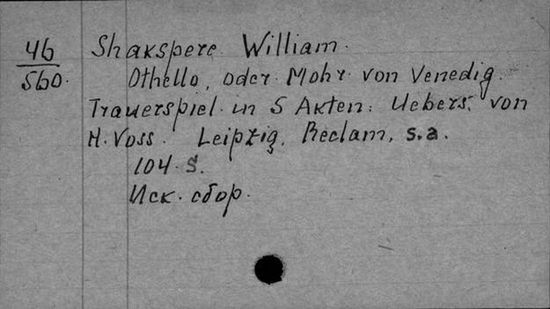 46
560.
Shakspere William.
Othello, oder Mohr von Venedig.
Trauerspiel in 5 Akten. Uebers. von
H. Voss. Leipzig, Reclam, s.a.
104 S.
Иск. сбор.